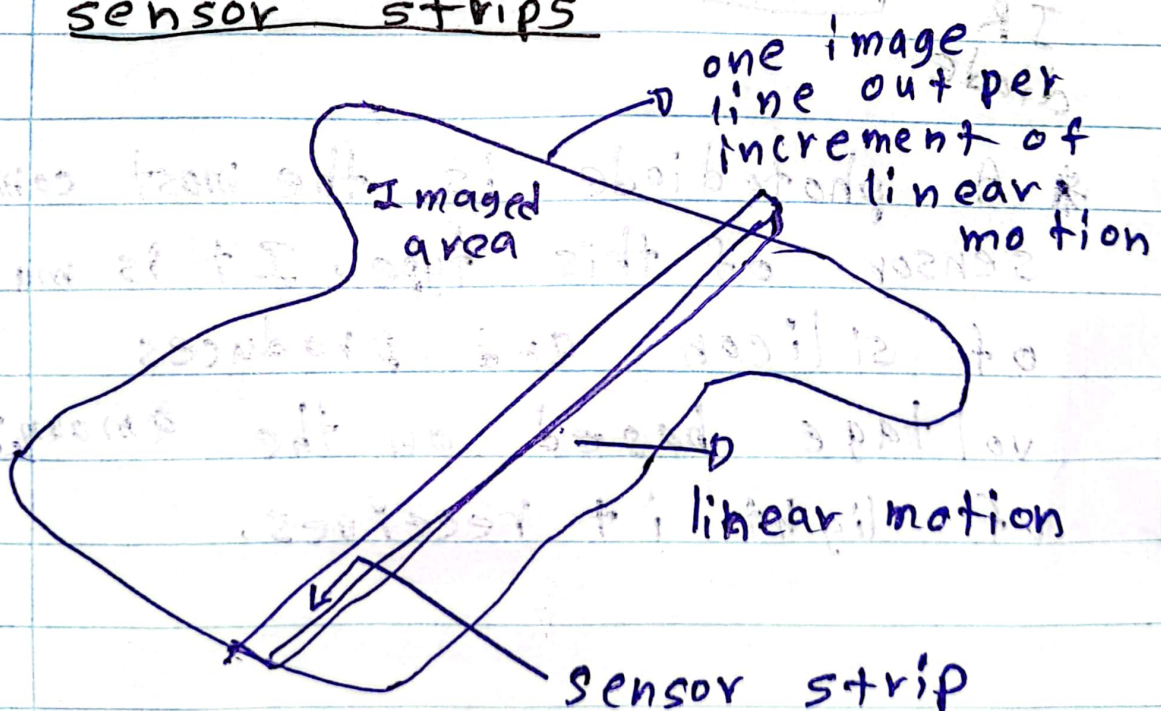 sensor strips
one image
line out per
increment of
linear
motion
Imaged
area
linear motion
sensor strip